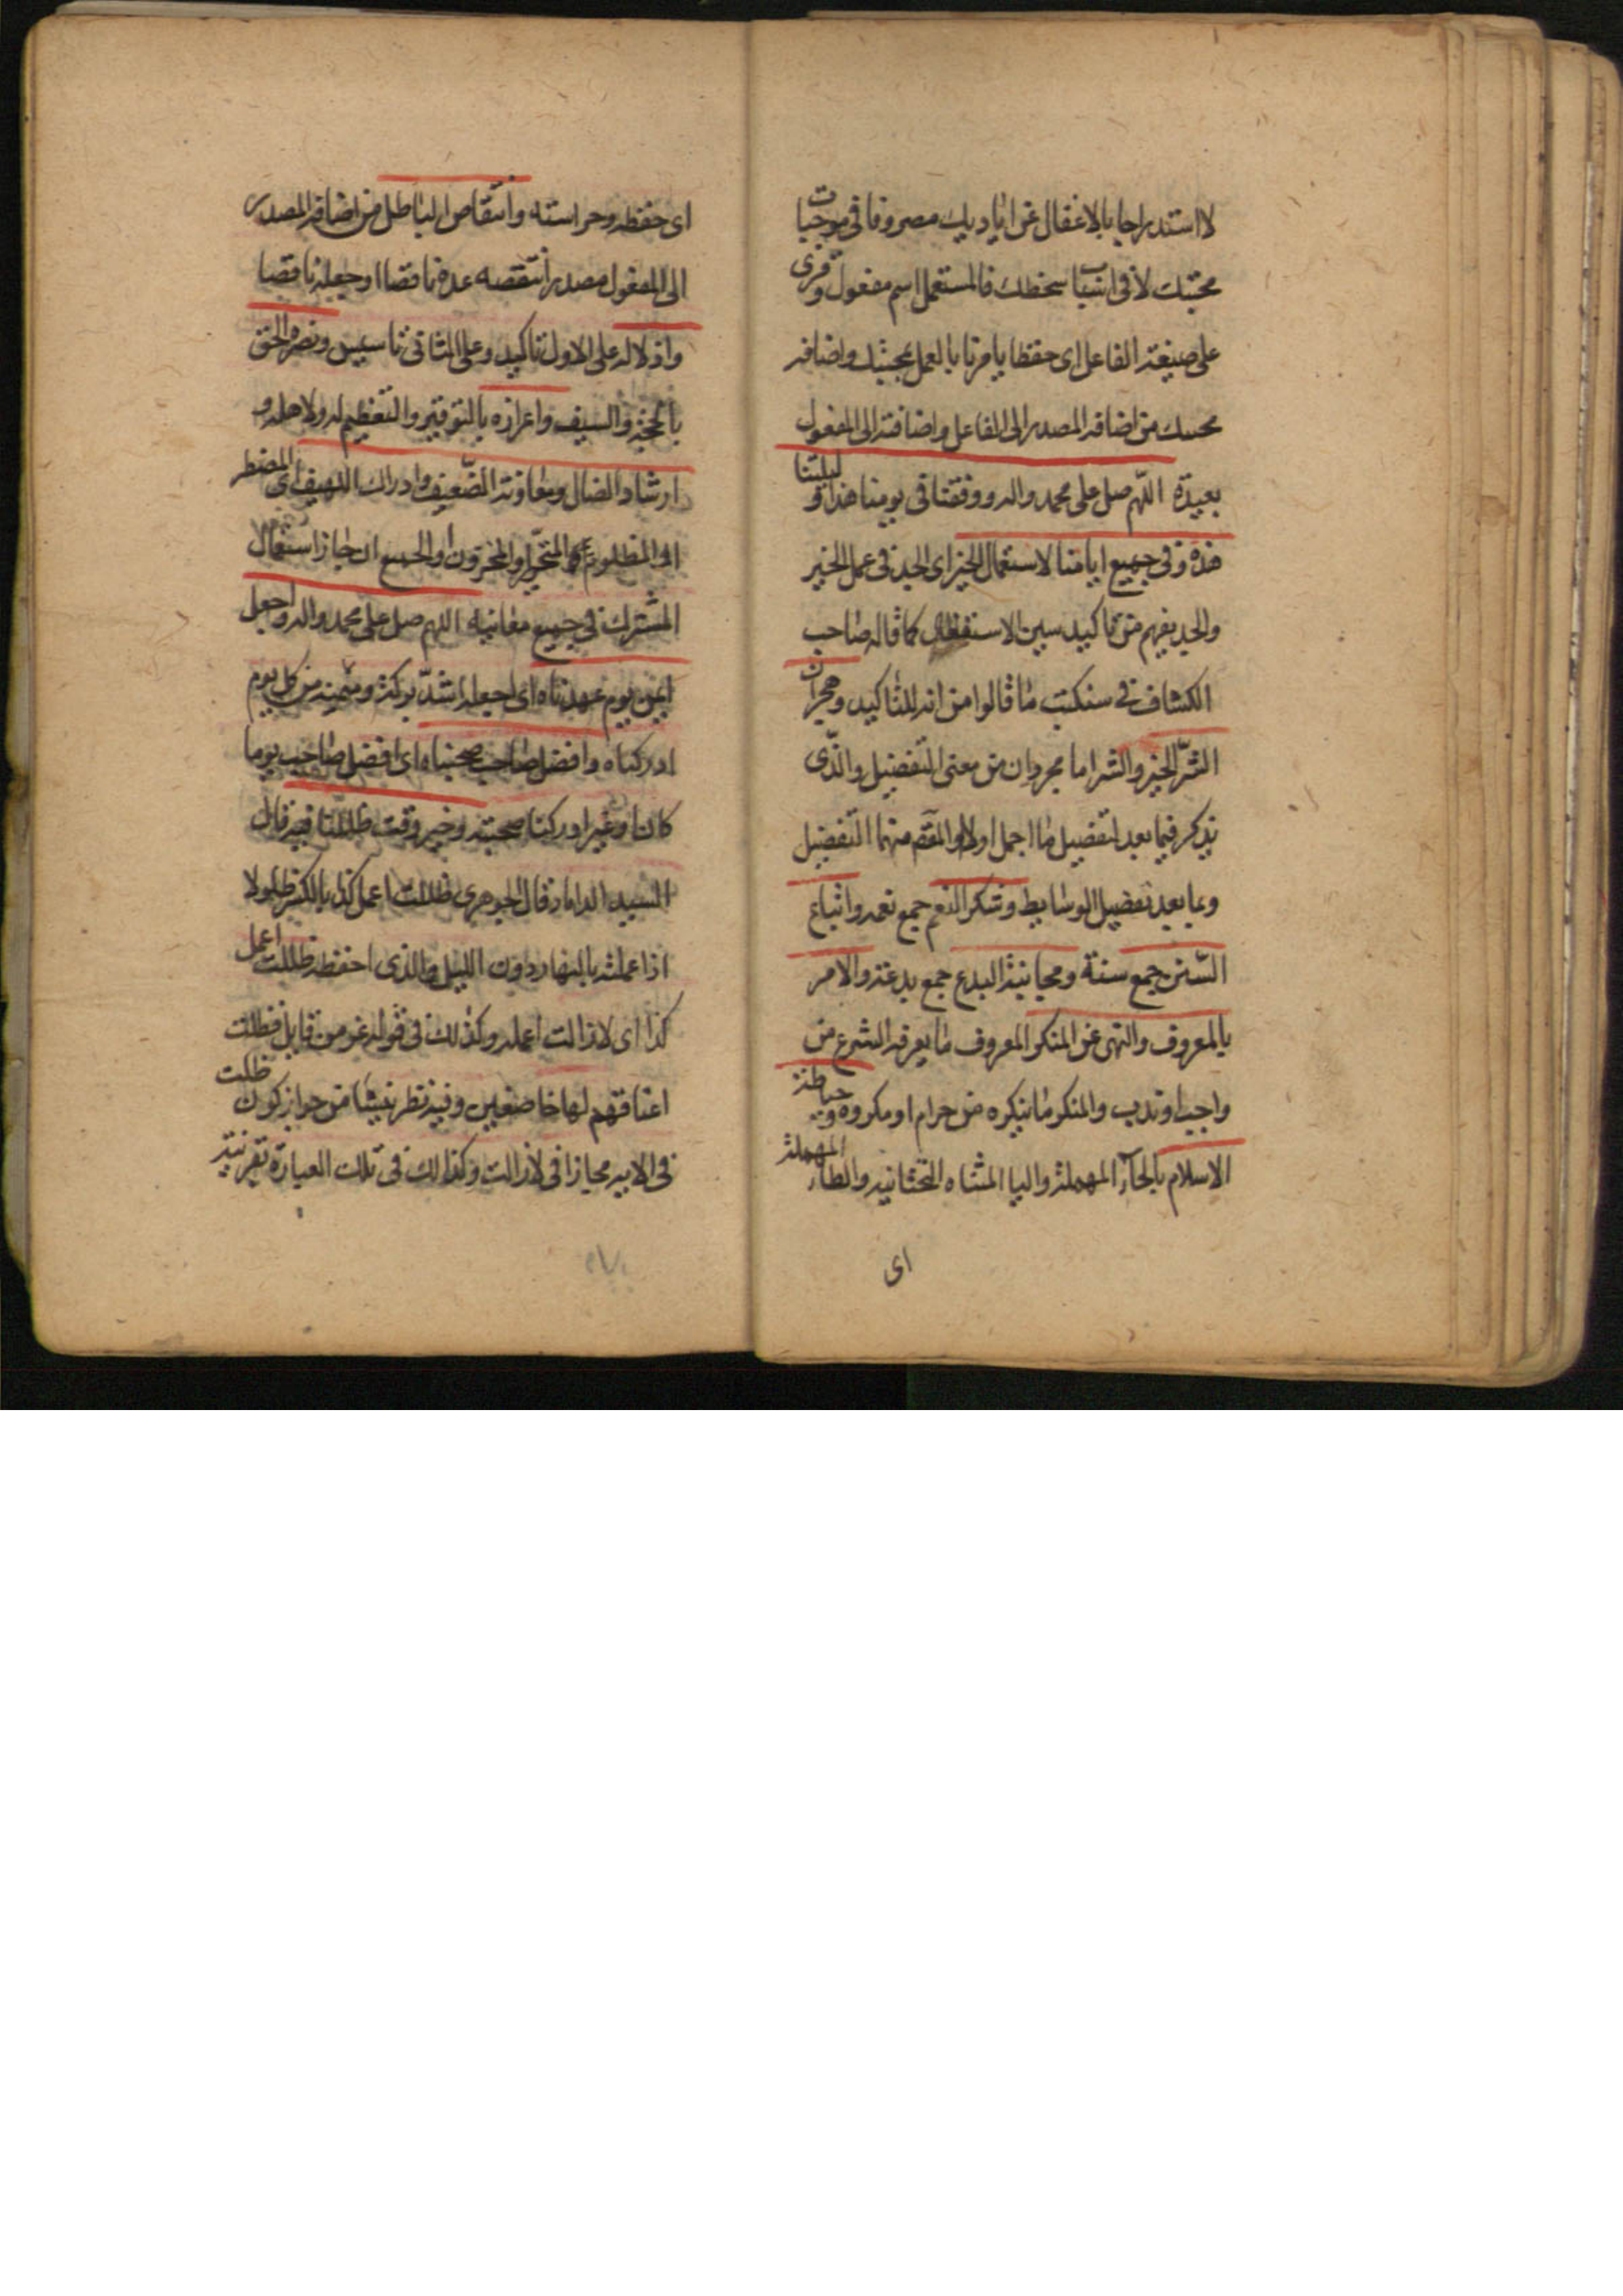 لا استدراجا بالاغفال عن اياديك مصروفا فى موجبات
محبتك لا فى اسباب سخطك فالمستعمل اسم مفعول وقرى
على صيغة الفاعل اى حفظا يامرنا بالعمل بمحبتك واضافة
محبتك من اضافة المصدر الى الفاعل واضافته الى المفعول
بعيدة اللهم صل على محمد واله ووفقنا فى يومنا هذا وليلتنا
هذه وفى جميع ايامنا لاستعمال الخير اى الجد فى عمل الخير
والجد يفهم من تاكيد سين الاستفعال كما قاله صاحب
الكشاف فى سنكتب ما قالوا من انه للتاكيد وهجران
الشر الخير والشر اما مجردان من معنى التفضيل والذى
يذكر فيما بعد تفصيل ما اجمل اولا والمقصود منهما التفضيل
وما بعد تفصيل الوسايط وشكر النعم جمع نعمه واتباع
السنن جمع سنة ومجانبة البدع جمع بدعة والامر
بالمعروف والنهى عن المنكر المعروف ما يعرفه الشرع من
واجب او ندب والمنكر ما ينكره من حرام او مكروه وحياطة
الاسلام بالحاء المهملة واليا المثناه التحتانيه والطاء المهملة
اى
اى حفظه وحراسته وانتقاص الباطل من اضافة المصدر
الى المفعول مصدر انتقصه عده ناقصا او جعله ناقصا
واذلاله على الاول تاكيد وعلى الثانى تاسيس ونصرة الحق
بالحجة والسيف واعزازه بالتوقير والتعظيم له ولاهله و
ارشاد الضال ومعاونة الضعيف وادراك اللهيف اى المضطر
او المظلوم او المتحير او المحزون او الجميع ان جاز استعمال
المشترك فى جميع معانيه اللهم صل على محمد واله واجعله
ايمن يوم عهدناه اى اجعله اشد بركة وميمنة من كل يوم
ادركناه وافضل صاحب صحبناه اى افضل صاحب يوما
كان او غيرا ادركنا صحبته وخير وقت ظللنا فيه قال
السيد الداماد قال الجوهرى ظللت اعمل كذا بالكسر ظلولا
اذا عملته بالنهار دون الليل والذى احفظه ظللت اعمل
كذا اى لا زالت اعمله وكذلك فى قوله عز من قايل فظلت
اعناقهم لها خاضعين وفيه نظر ينشا من جواز كون ظلت
فى الايه مجازا فى لا زالت وكذلك فى تلك العبارة بقرينة